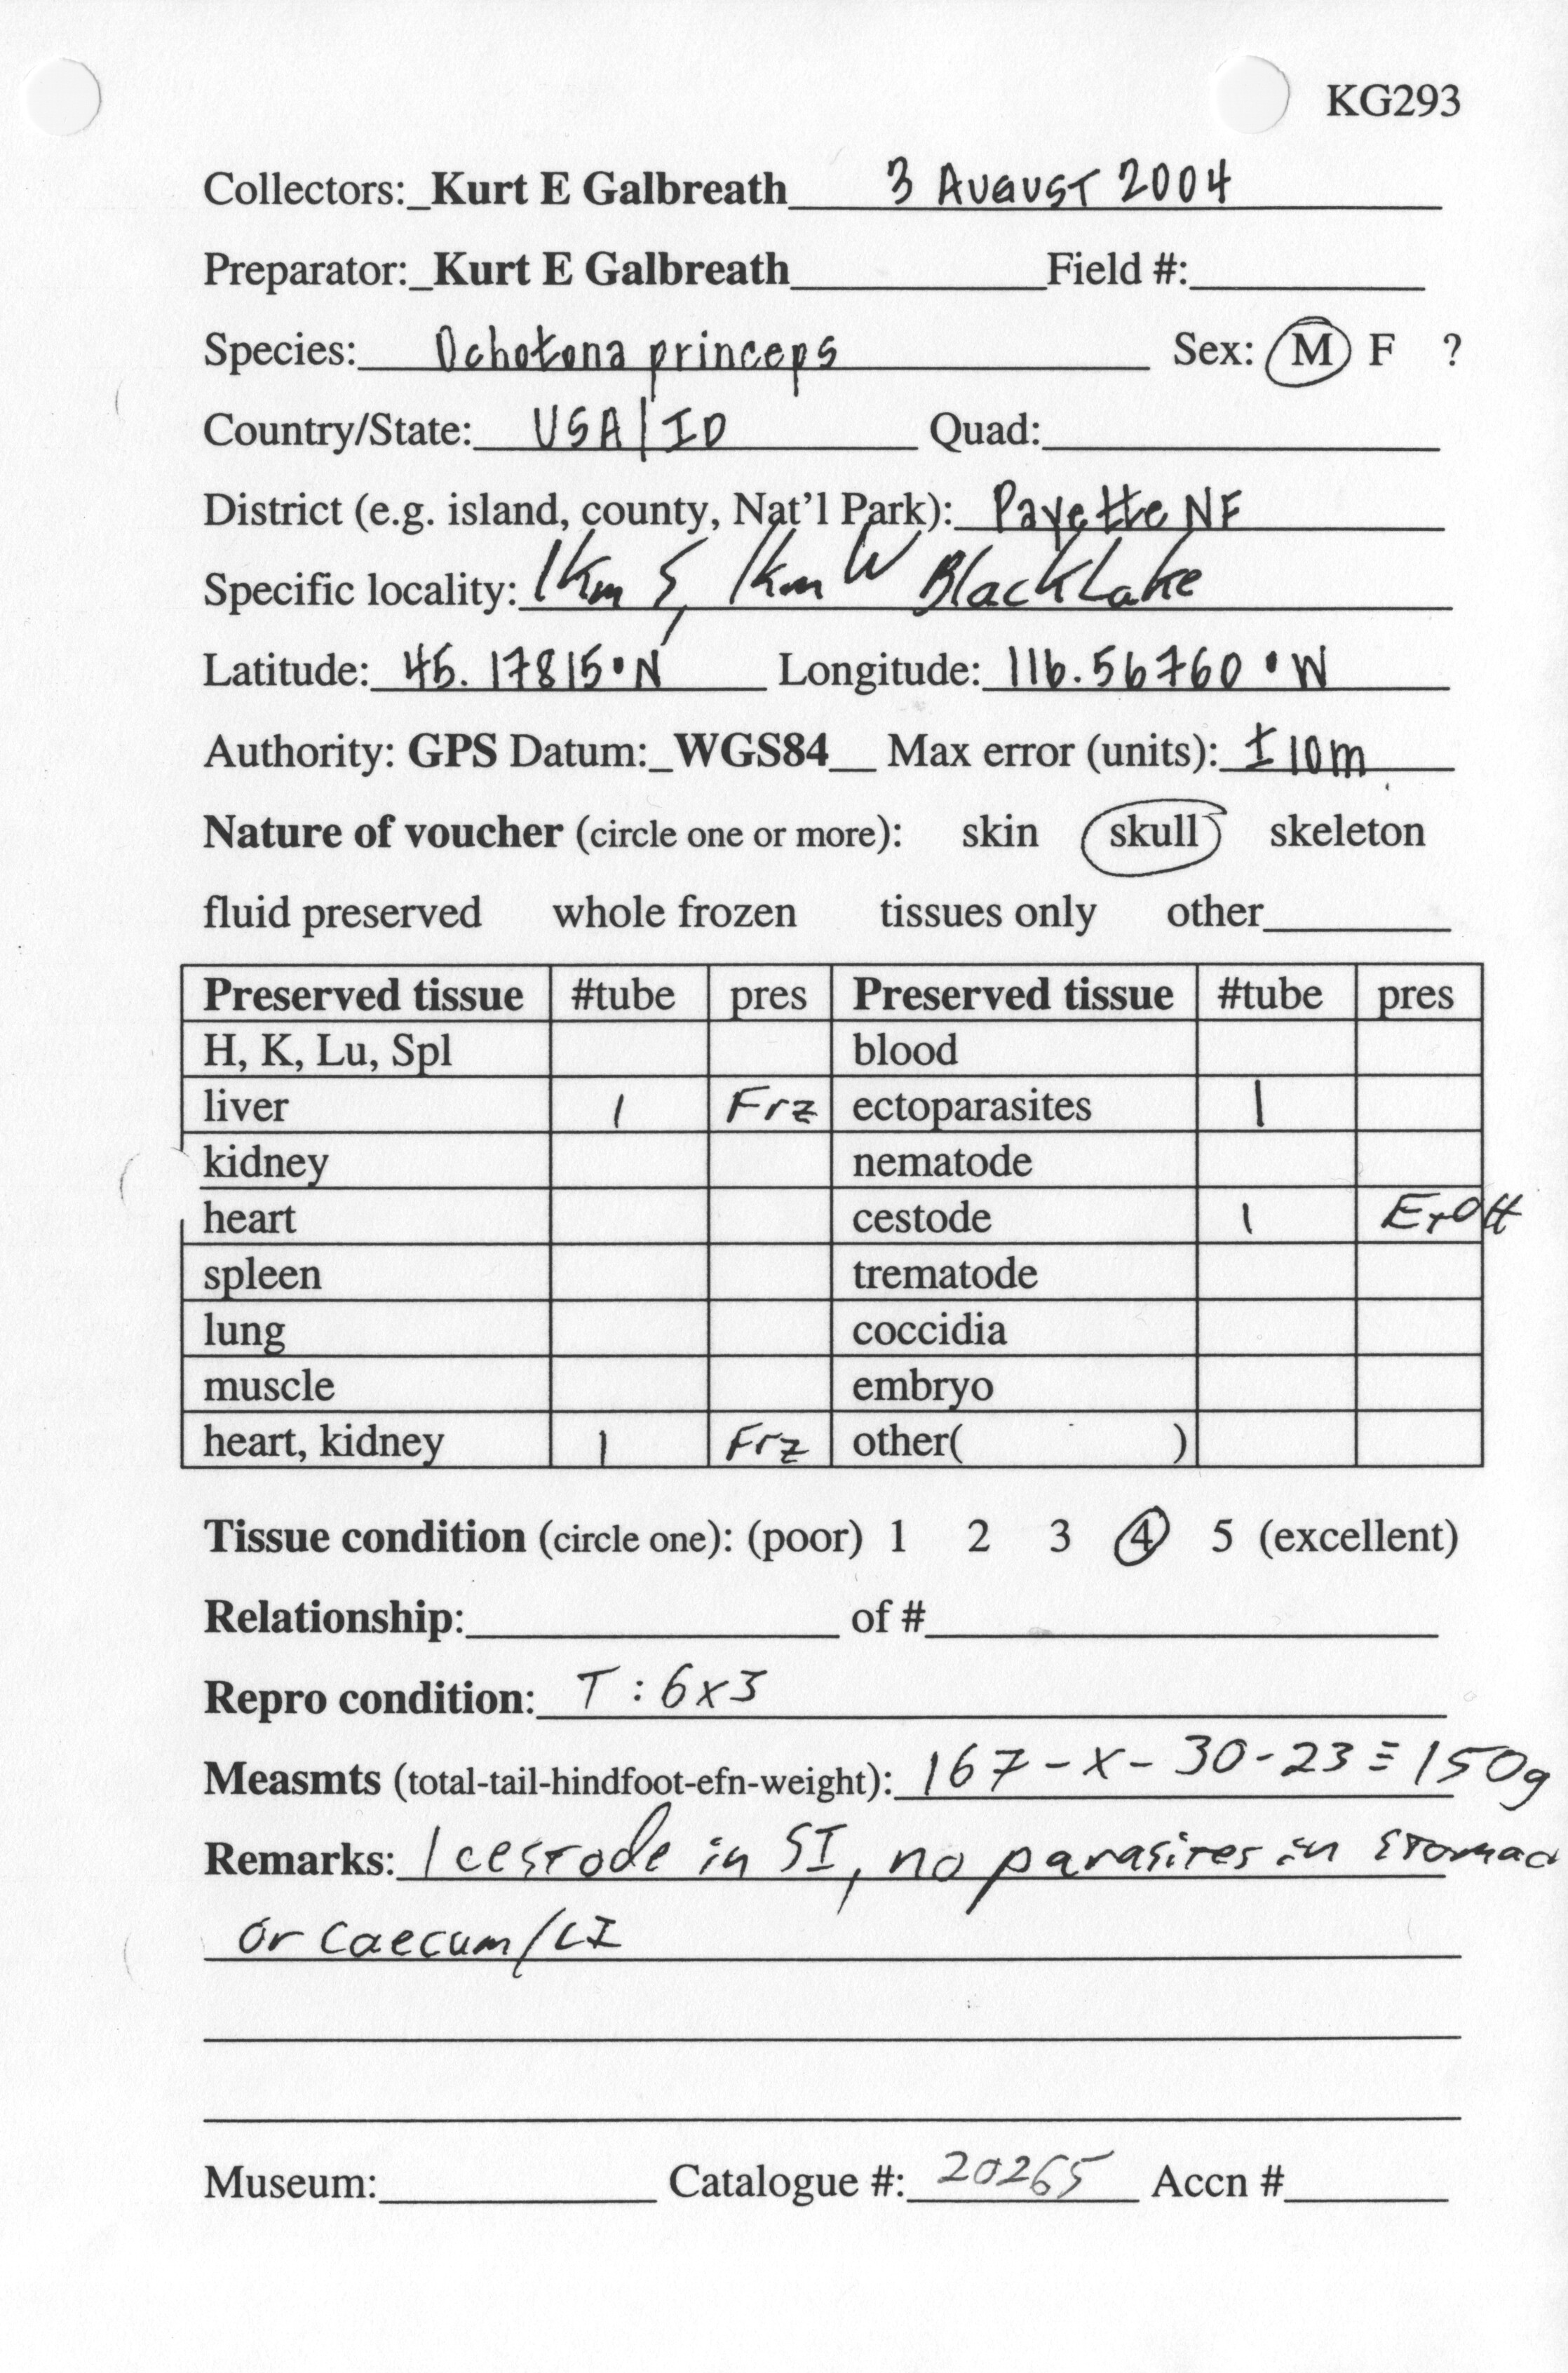 KG293
Collectors:_Kurt E Galbreath 3 AUGUST 2004
Preparator:_Kurt E Galbreath Field #:
Species: Ochotona princeps Sex: M F ?
Country/State: USA/ID Quad:
District (e.g. island, county, Nat'l Park): Payette NF
Specific locality: 1km S, 1km W Black Lake
Latitude: 45.17815°N Longitude: 116.56760°W
Authority: GPS Datum:_WGS84__ Max error (units): ±10m
Nature of voucher (circle one or more): skin skull skeleton
fluid preserved whole frozen tissues only other
Preserved tissue #tube pres Preserved tissue #tube pres
H, K, Lu, Spl blood
liver 1 Frz ectoparasites 1
kidney nematode
heart cestode 1 EtOH
spleen trematode
lung coccidia
muscle embryo
heart, kidney 1 Frz other( )
Tissue condition (circle one): (poor) 1 2 3 4 5 (excellent)
Relationship: of #
Repro condition: T: 6x3
Measmts (total-tail-hindfoot-efn-weight): 167-x-30-23≡150g
Remarks: 1 cestode in SI, no parasites in stomac
or caecum/LI
Museum: Catalogue #: 20265 Accn #